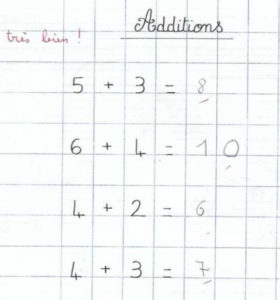 Additions
très bien !
5 + 3 = 8
6 + 4 = 10
4 + 2 = 6
4 + 3 = 7